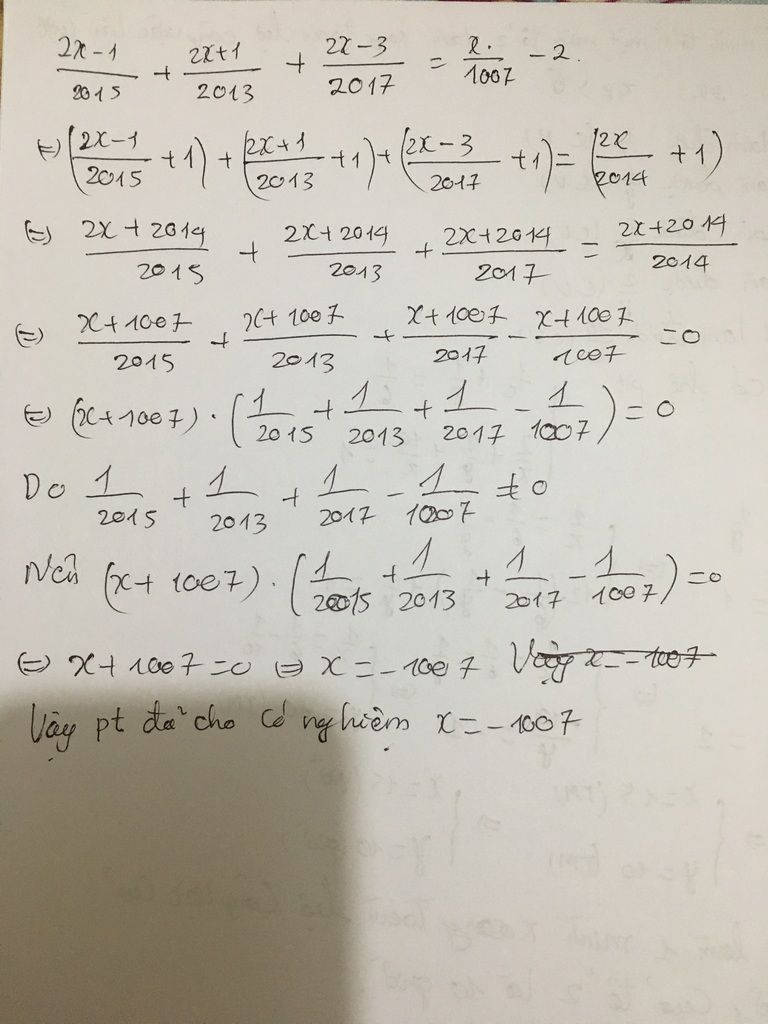 (2x-1)/2015 + (2x+1)/2013 + (2x-3)/2017 = x/1007 - 2.
(=) ((2x-1)/2015 + 1) + ((2x+1)/2013 + 1) + ((2x-3)/2017 + 1) = (2x/2014 + 1)
(=) (2x+2014)/2015 + (2x+2014)/2013 + (2x+2014)/2017 = (2x+2014)/2014
(=) (x+1007)/2015 + (x+1007)/2013 + (x+1007)/2017 - (x+1007)/1007 = 0
(=) (x+1007) . (1/2015 + 1/2013 + 1/2017 - 1/1007) = 0
Do 1/2015 + 1/2013 + 1/2017 - 1/1007 ≠ 0
Nên (x+1007) . (1/2015 + 1/2013 + 1/2017 - 1/1007) = 0
(=) x+1007=0 (=) x=-1007 Vậy x=-1007
Vậy pt đã cho có nghiệm x=-1007